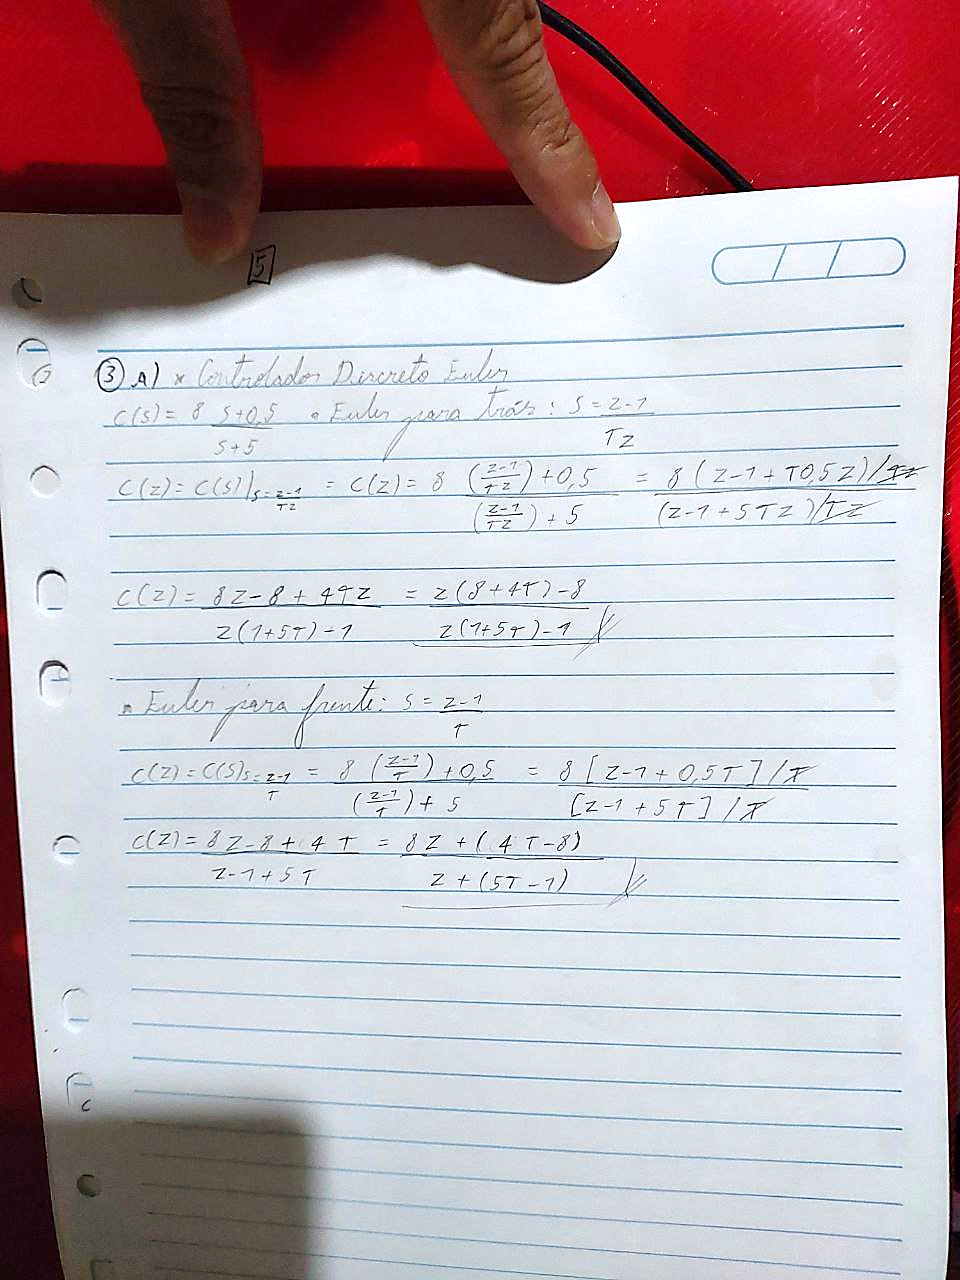 5
③ A) * Controlador Discreto Euler
C(s) = 8 (s+0,5)/(s+5) • Euler para trás: s = (z-1)/(Tz)
C(z) = C(s)|s=(z-1)/(Tz) = C(z) = 8 (((z-1)/(Tz))+0,5)/(((z-1)/(Tz))+5) = 8(z-1+T0,5z)/Tz / (z-1+5Tz)/Tz
C(z) = (8z-8+4Tz)/(z(1+5T)-1) = (z(8+4T)-8)/(z(1+5T)-1)
• Euler para frente: s = (z-1)/T
C(z) = C(s)s=(z-1)/T = 8 (((z-1)/T)+0,5)/(((z-1)/T)+5) = 8[z-1+0,5T]/T / [z-1+5T]/T
C(z) = (8z-8+4T)/(z-1+5T) = (8z+(4T-8))/(z+(5T-1))